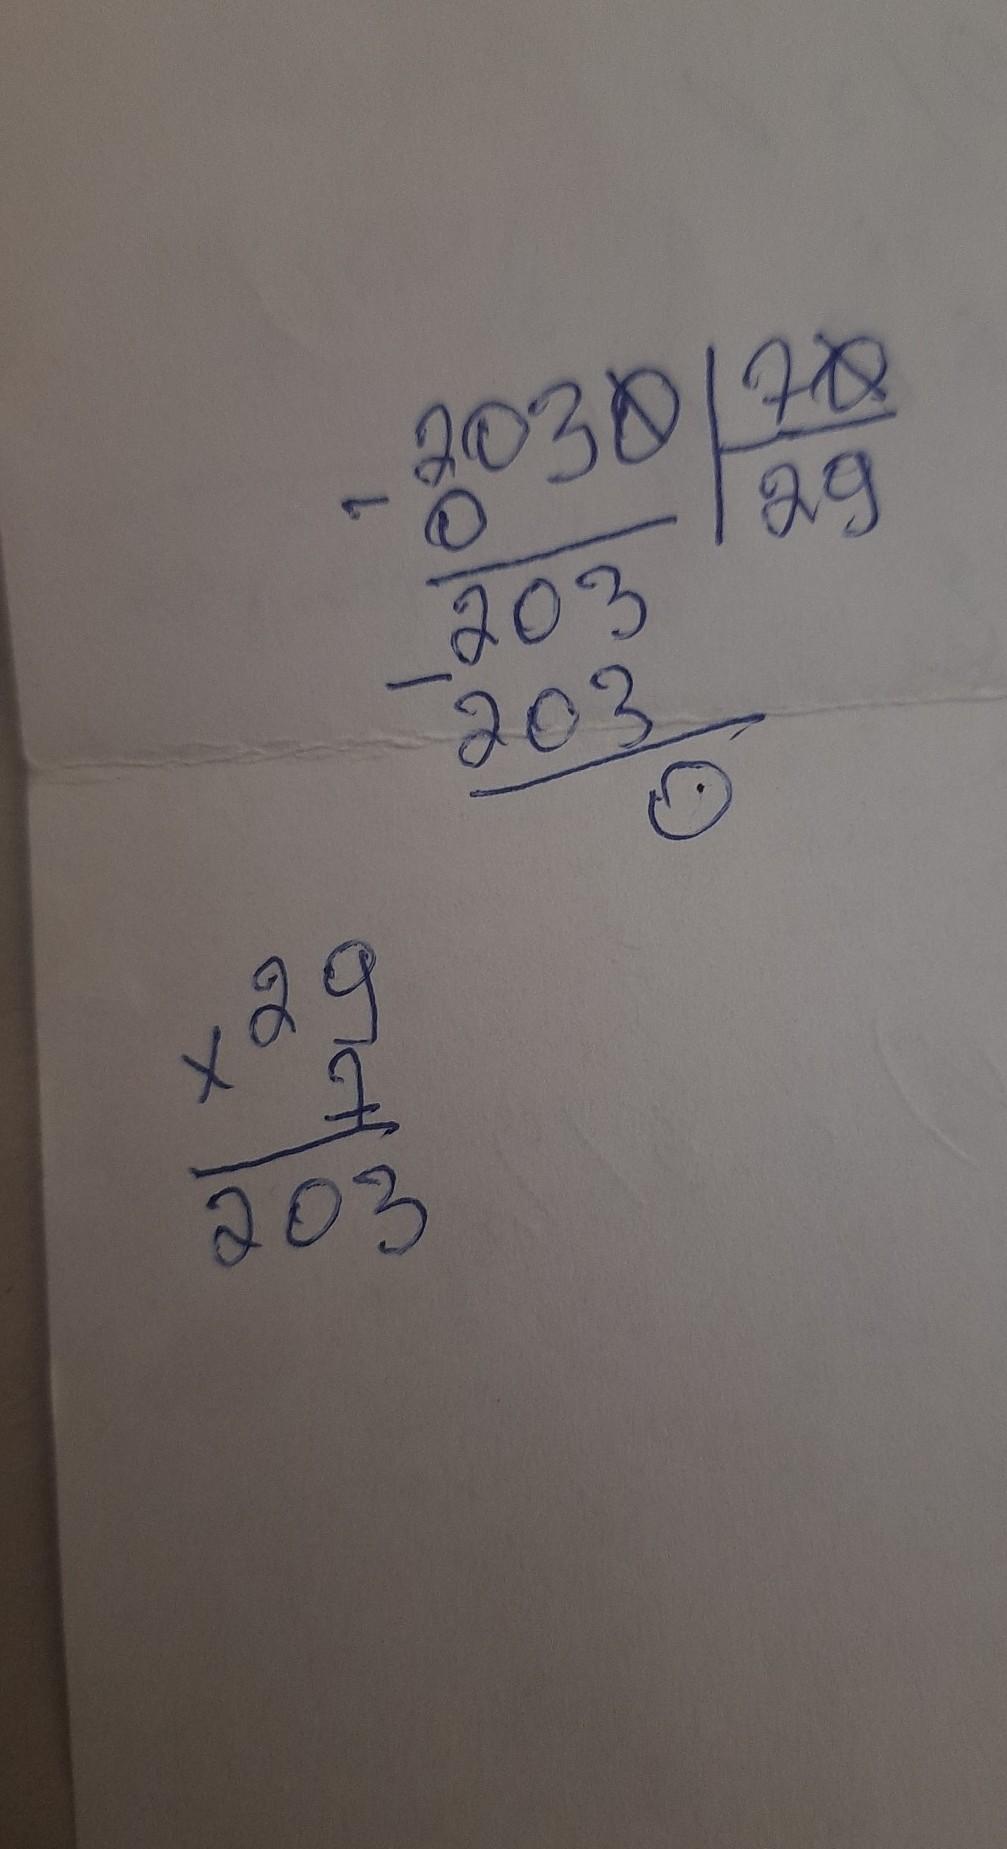 2030 | 70
- 0 | 29
203
- 203
0
29
x 7
203